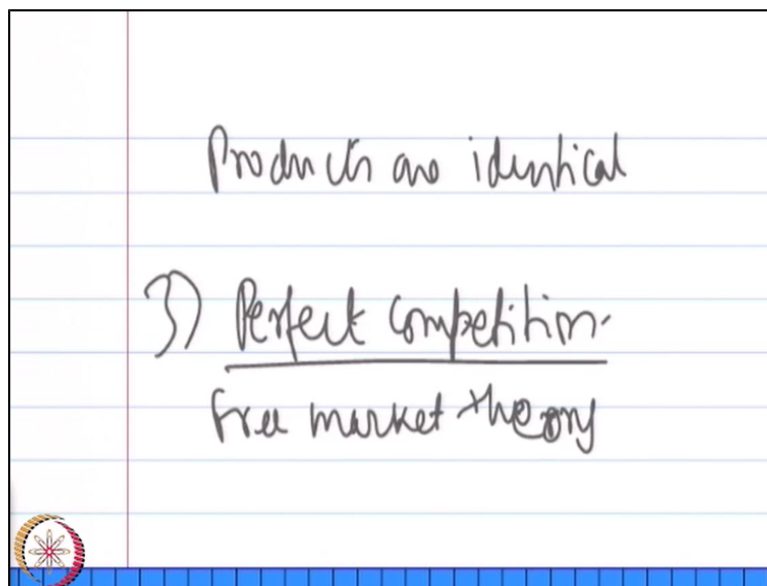 Products are identical
3) Perfect competition.
Free market theory